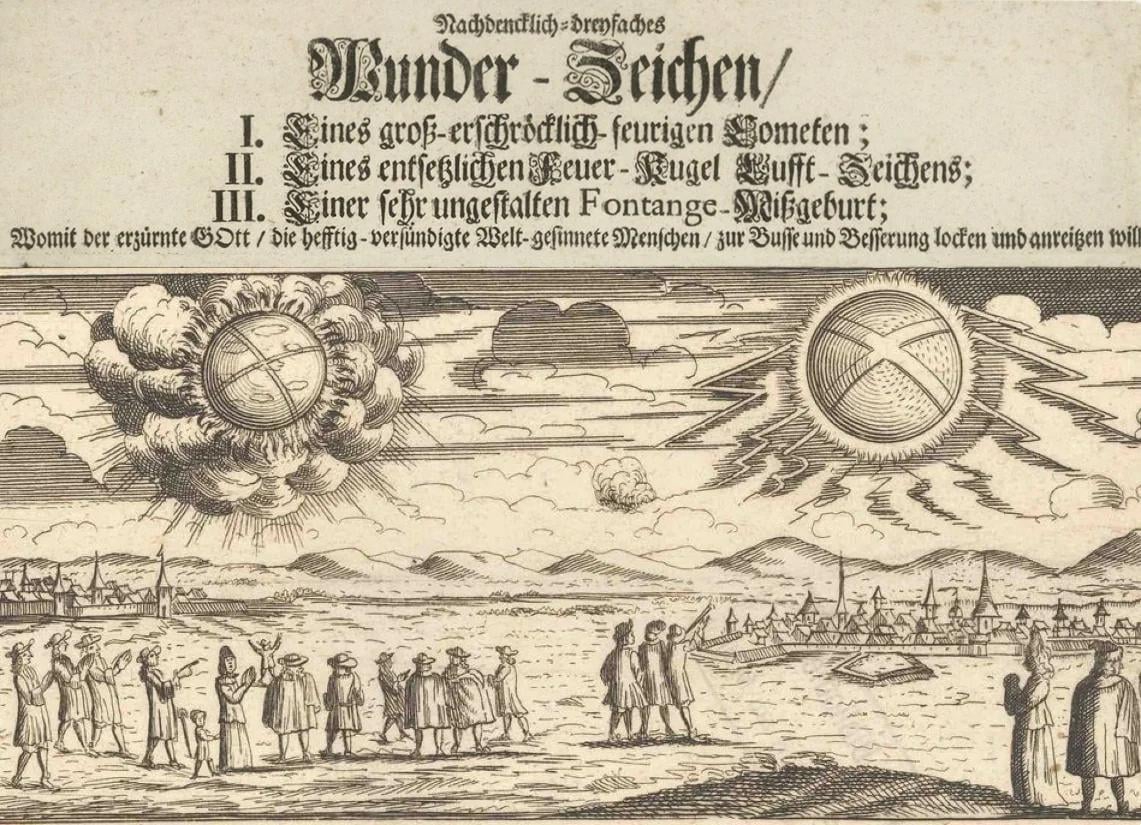 Nachdencklich-dreyfaches
Wunder-Zeichen/
I. Eines groß-erschröcklich-feurigen Cometen;
II. Eines entsetzlichen Feuer-Kugel Lufft-Zeichens;
III. Einer sehr ungestalten Fontange-Mißgeburt;
Womit der erzürnte GOtt / die hefftig-versündigte Welt-gesinnete Menschen / zur Busse und Besserung locken und anreitzen will